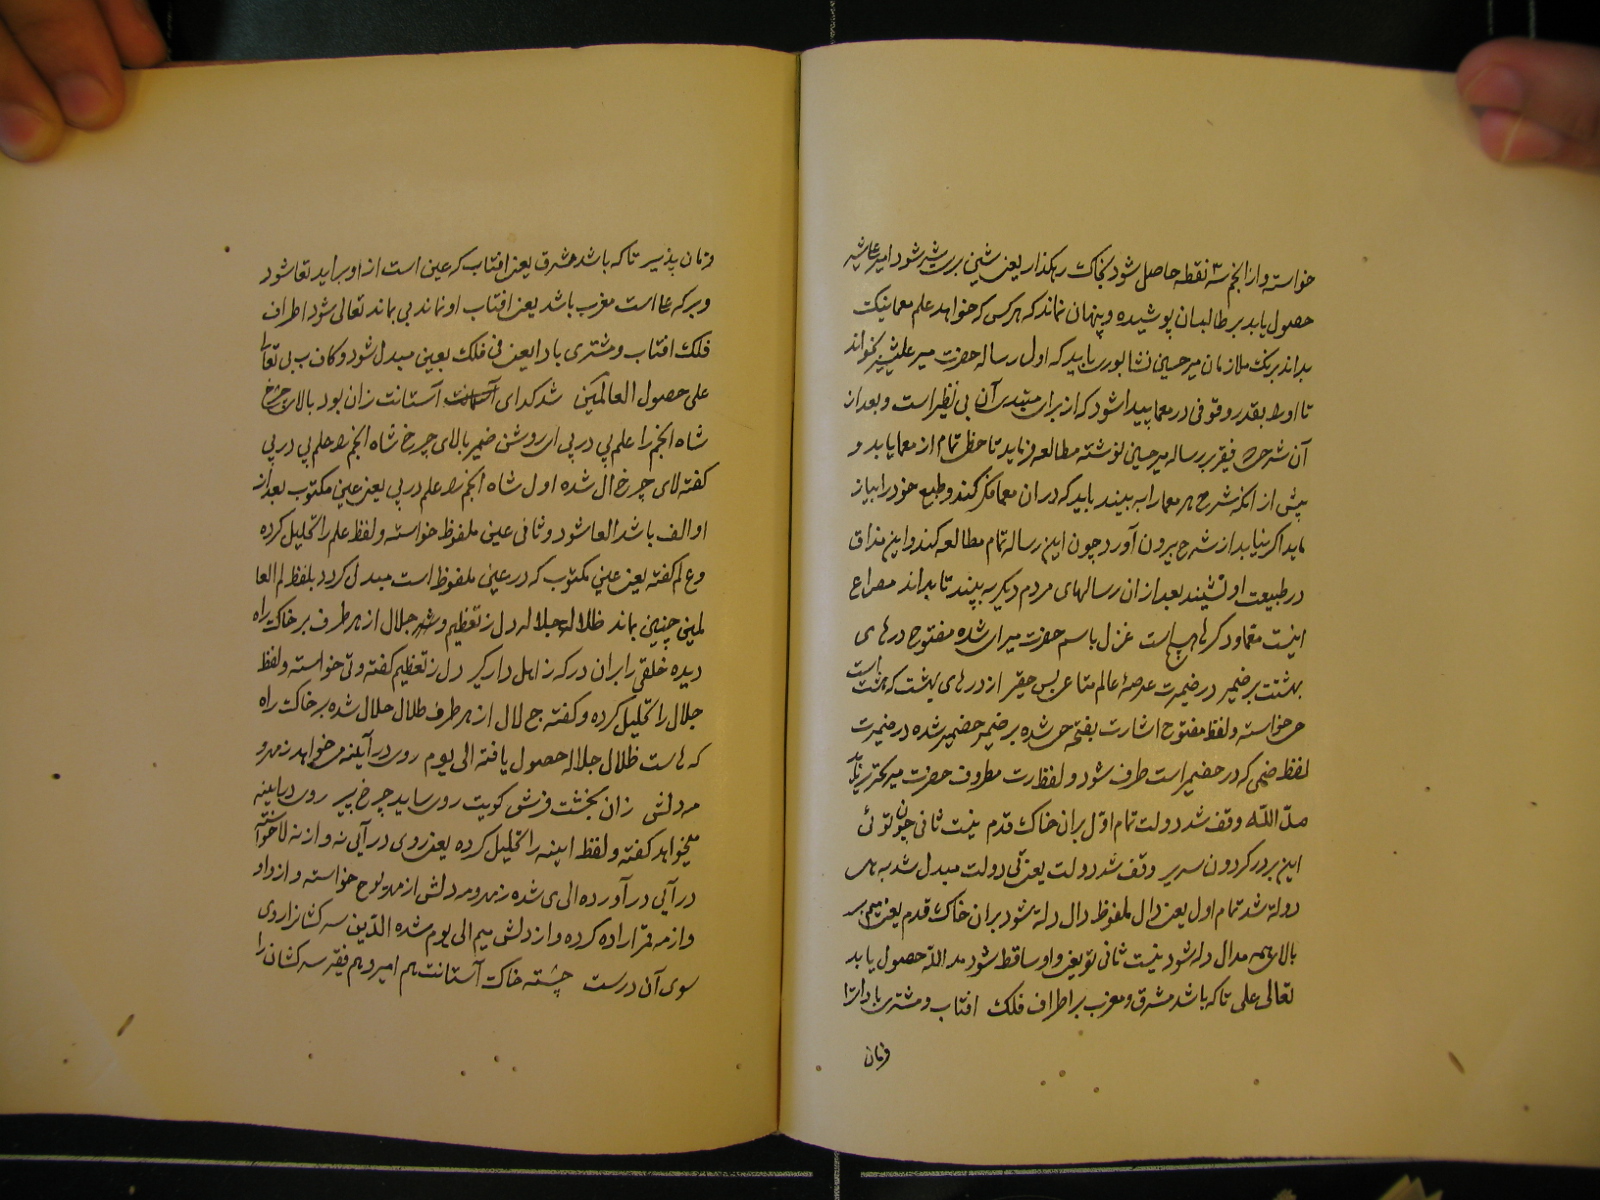 خواسته و از انجم سه نقطه حاصل شود بخاک رهکذار یعنی شینی بر رشیر شود امیر علیشیر
حصول یابد بر طالبان پوشیده و پنهان نماند که هر کس که خواهد علم معما نیک
بداند بریک ملازمان میر حسینی نشابوری باید که اول رساله حضرت میر علیشیر بخواند
تا او را بقدر وقوفی در معما پیدا شود که از برای مبتدی آن بی نظیر است و بعد از
آن شرح فقیر بر رساله میر حسینی نوشته مطالعه فرماید تا حظ تمام از معما یابد و
پیش از انکه شرح هر معما را به بیند باید که در ان معما فکر کند و طبع خود را بیاز
ماید اکر نیابد از شرح بیرون آورد چون این رساله تمام مطالعه کند و این مذاق
در طبیعت او نشیند بعد از ان رسالهای مردم دیکر به بیند تا بداند مصراع
اینست غزل باسم حضرت میر ای شده مفتوح درهای
بهشتت بر ضمیر در ضمیرت عرصهٔ عالم متاعی بس حقیر از درهای بهشت که هشت است
ح خواسته و لفظ مفتوح اشارت بفتح ح شده بر ضمیر حضمیر شده در ضمیرت
لفظ ضمی که در حضمیر است ظرف شود و لفظ رت مظروف حضرت میر
مد الله وقف شد دولت تمام اول بران خاک قدم نیست ثانی چون توئی
این بر در کردون سریر وقف شد دولت یعنی تی دولت مبدل شد به هی
دوله شد تمام اول یعنی دال ملفوظ دال دله شود بران خاک قدم یعنی میم بر
بالای همه مدال دله شود نیست ثانی تو یعنی واو ساقط شود مد الله حصول یابد
تعالی علی تا که باشد مشرق و مغرب بر اطراف فلک افتاب و مشتری بادا ترا
فرمان
فرمان پذیر تا که باشد مشرق یعنی افتاب که عین است از او براید تعا شود
و بر که عا است مغرب باشد یعنی افتاب او نماند بی بماند تعالی شود اطراف
فلک افتاب و مشتری بادا یعنی فی فلک بعین مبدل شود و کاف ب بی تعا ترا
علی حصول العالمین شد کدای آستانت زان بود بالای چرخ
شاه انجم را علم پی در پی ای روشن ضمیر بالای چرخ شاه انجم را علم پی در پی
کفته لای چرخ ال شده اول شاه انجم را علم در پی یعنی عین مکتوب بعد از
او الف باشد العا شود و ثانی عین ملفوظ خواسته و لفظ علم را تحلیل کرده
و ع لم کفته یعنی عین مکتوب که در عین ملفوظ است مبدل کردد بلفظ لم العا
لمین چنین بماند ظلال جلاله دل ز تعظیم و جلال از هر طرف بر خاک راه
دیده خلقی را بران درکه ز اهل دار کیر دل ز تعظیم کفته و تی خواسته و لفظ
جلال را تحلیل کرده و کفته ج لال از هر طرف ظلال جلال شده بر خاک راه
که ه است ظلال جلاله حصول یافته الی یوم روی در آیینه می خواهد ز مهر و
مه دلش زان بخشت فرش کویت روی ساید چرخ پیر روی در آینه
میخواهد کفته و لفظ اینه را تحلیل کرده یعنی روی در آیی نه و از نه لا خواسته
در آیی در آورده الی ی شده ز مهر و مه دلش از مهر یوح خواسته و ازو او
و از مه قمر اراده کرده و از دلش میم الی یوم شده الدین سرکشانرا روی
سوی آن درست چشته خاک آستانت هم امیر و هم فقیر سرکشان را